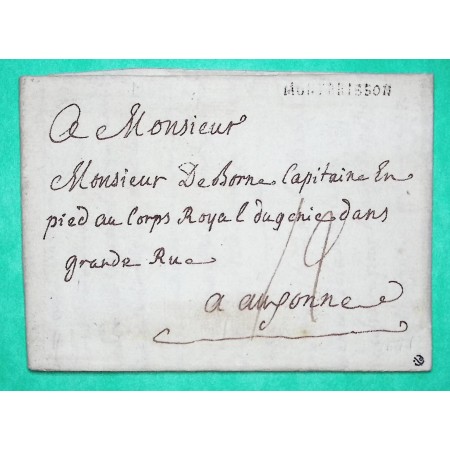 MONTBRISSON
A Monsieur
Monsieur DeBorne Capitaine En
pied au Corps Royal dugenie dans
grande Rue
a auxonne